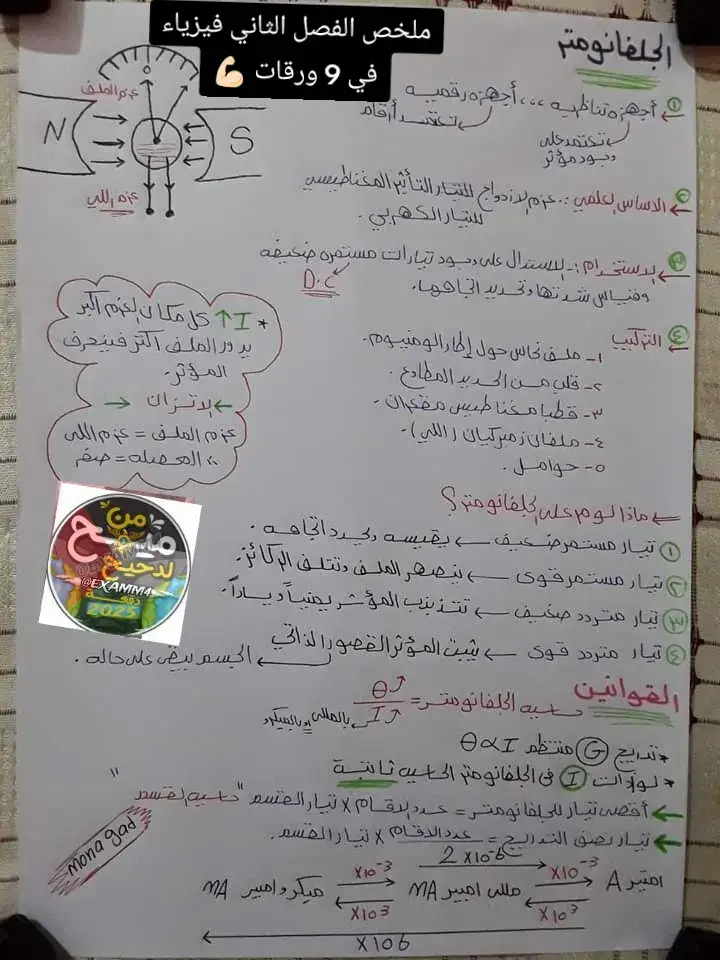 ملخص الفصل الثاني فيزياء
في 9 ورقات 💪🏻
الجلفانومتر
① أجهزة تناظرية ،،، أجهزة رقمية
تعتمد على
وجود مؤثر
تعتمد أرقام
عزم الملف
N
S
0
عزم اللي
② الاساس العلمي :. عزم الازدواج للتيار التأثير المغناطيسي
للتيار الكهربي .
③ الاستخدام :- الاستدلال على وجود تيارات مستمره ضعيفه
D.C
وقياس شدتها وتحديد اتجاهها.
④ التركيب
١- ملف نحاس حول إطار الومنيوم.
٢- قلب من الحديد المطاوع .
٣- قطبا مغناطيس مقعران .
٤- ملفان زمبركيان (اللي).
٥- حوامل .
* I ↑ كل مكان العزم اكبر
يدور الملف اكتر فينحرف
المؤثر.
← الاتزان →
عزم الملف = عزم اللي
∴ المحصله = صفر
من
منيـح
لدحيح
@EXAMM4
دفعة
2025
← ماذا لو مر على الجلفانومتر؟
① تيار مستمر ضعيف ← يقيسه ويحدد اتجاهه .
② تيار مستمر قوى ← ينصهر الملف وتتلف الركائز.
③ تيار متردد ضغيف ← تتذبذب المؤشر يميناً ويساراً.
④ تيار متردد قوى ← يثبت المؤثر القصور الذاتي
الجسم يبقى على حاله .
القوانين
حساسيه الجلفانومتر = θ / I
بالمللي او بالميكرو
* تدريج G منتظم θ ∝ I
* لو زادت I فى الجلفانومتر الحساسيه ثابتة
← أقصى تيار للجلفانومتر = عدد الاقسام × تيار القسم "حساسيه القسم"
← تيار نصف التدريج = عدد الاقسام × تيار القسم.
mona gad
2 X10-6
امبير A X10-3 مللى امبير MA X10-3 ميكرو امبير MA
X10 3 X10 3
X 106